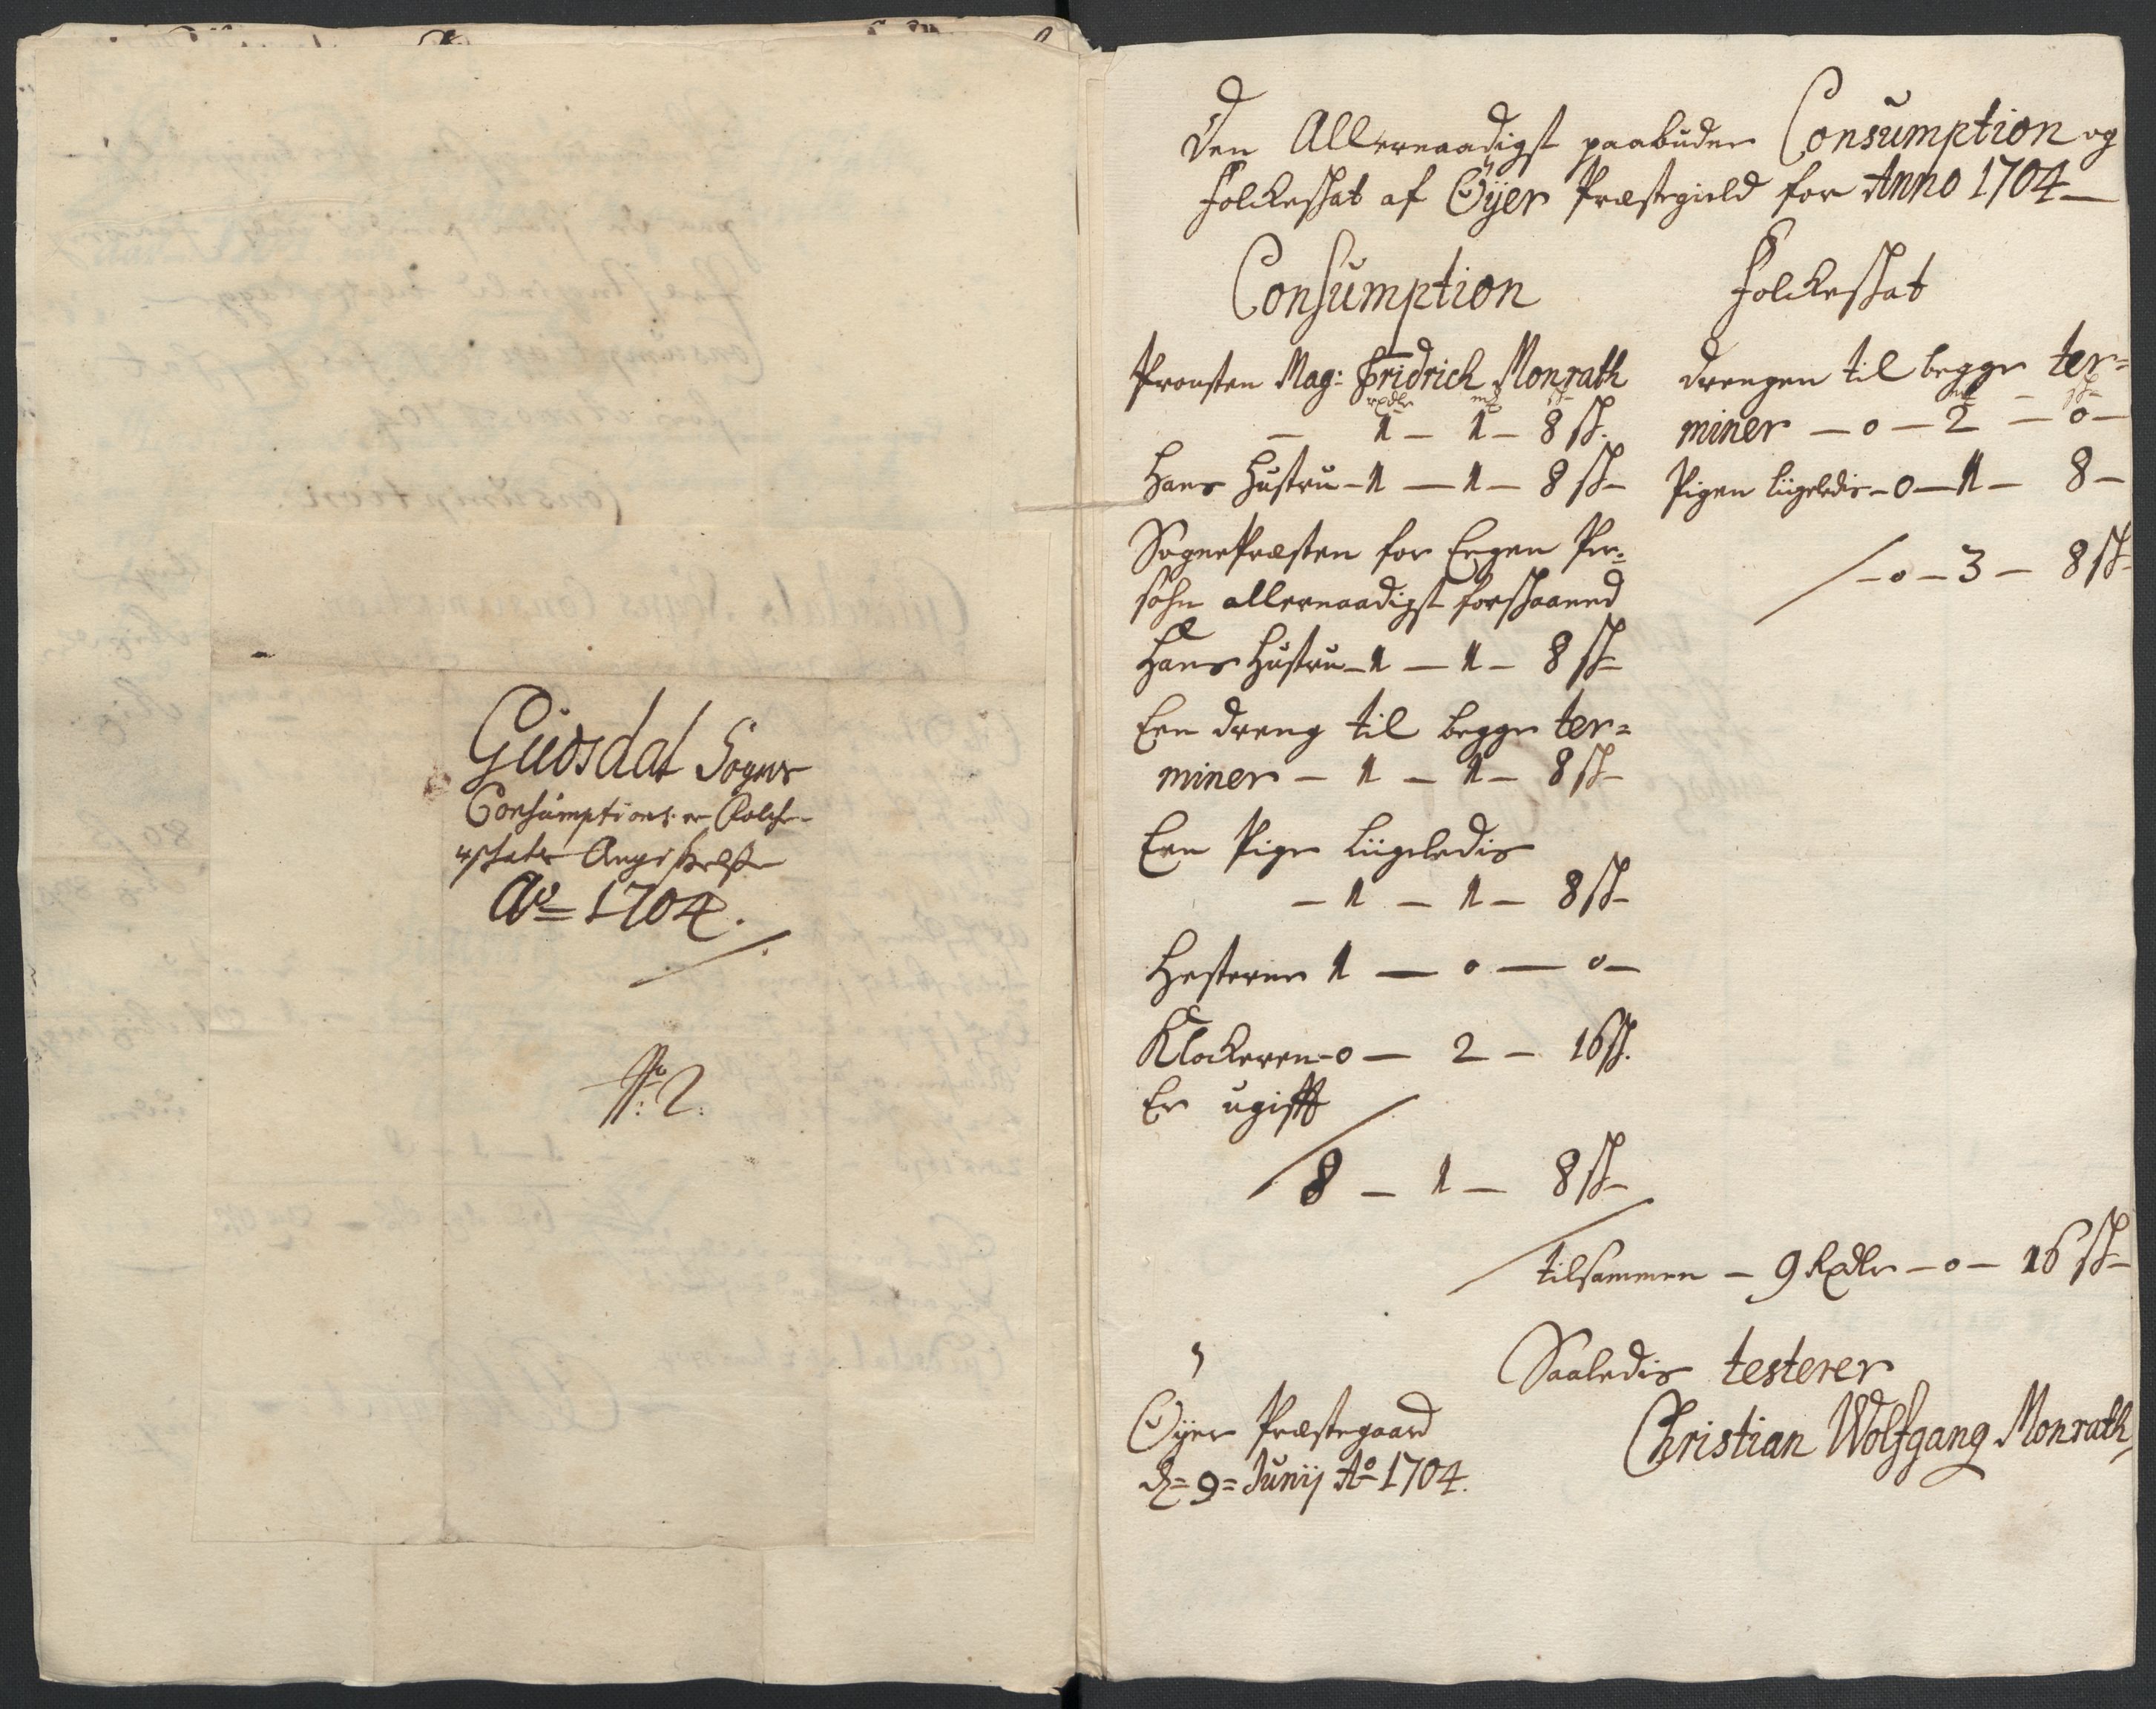 Gudsdal Sogns
Consumptions oc Folche-
schats Angifvelse
Ao 1704.
No: 2:
Den Allernaadigst paabudne Consumption og
Folckeskat af Öÿer Præstegield for Anno 1704
Consumption
Folckeskat
Provsten Mag: Fridrich Monrath
rxdlr mk sk
1 - 1 - 8 sk.
Hans Hustru - 1 - 1 - 8 sk
SognePræsten for Eegen Per-
sohn allernaadigst forskaaned
Hans Hustru - 1 - 1 - 8 sk
Een dreng til begge ter-
miner - 1 - 1 - 8 sk
Een Pige liigeledis
- 1 - 1 - 8 sk
Hesterne 1 - 0 - 0 -
Klockeren - 0 - 2 - 16 sk.
Er ugifft
8 - 1 - 8 sk
drengen til begge ter=
mk sk
miner - 0 - 2 - 0 -
Pigen liigeledis - 0 - 1 - 8 -
- 0 - 3 - 8 sk
tilsammen - 9 Rxdlr - 0 - 16 sk
Saaledis testerer
Christian Wolfgang Monrath
Öÿer Præstegaard
d= 9= Junij Ao 1704.